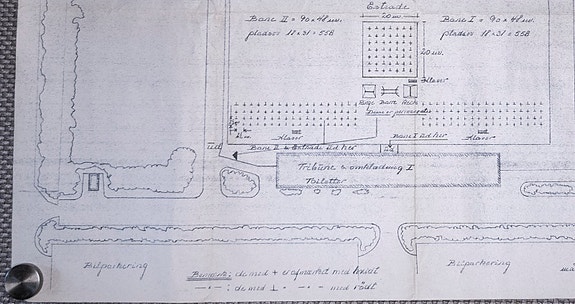 Estrade
20 m.
Bane II = 90 x 48 m.
pladser 18 x 31 = 558
Bane I = 90 x 48 m.
pladser 18 x 31 = 558
20 m.
Klaver
Bane
Reck
Klaver
Klaver
Bane I Ud her
Ud
Bane II & Estrade Ud her
Tribune & omklædning I
Toiletter
Bilparkering
Bemærk: de med + er afmærket med hvidt
— " — : de med ⊥ - " - - " - med rødt
Bilparkering